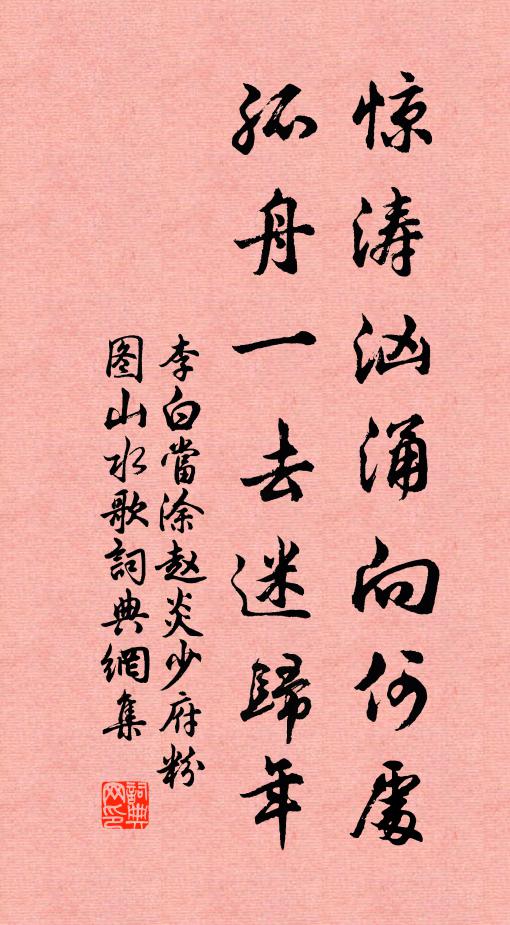 惊涛汹涌向何處
孤舟一去迷歸年
李白當涂赵炎少府粉
图山水歌詞典網集
詞典网印